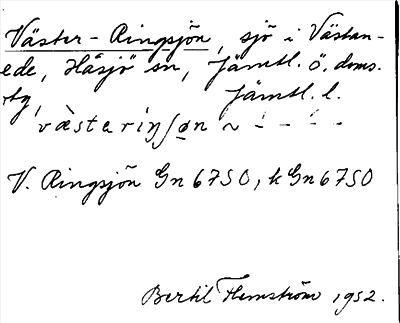 Väster-Ringsjön, sjö i Västan-
ede, Håsjö sn, Jämtl. ö. doms.
rtg, Jämtl. l.
V. Ringsjön Gn 67SO, k Gn 67SO
Bertil Flemström 1952.